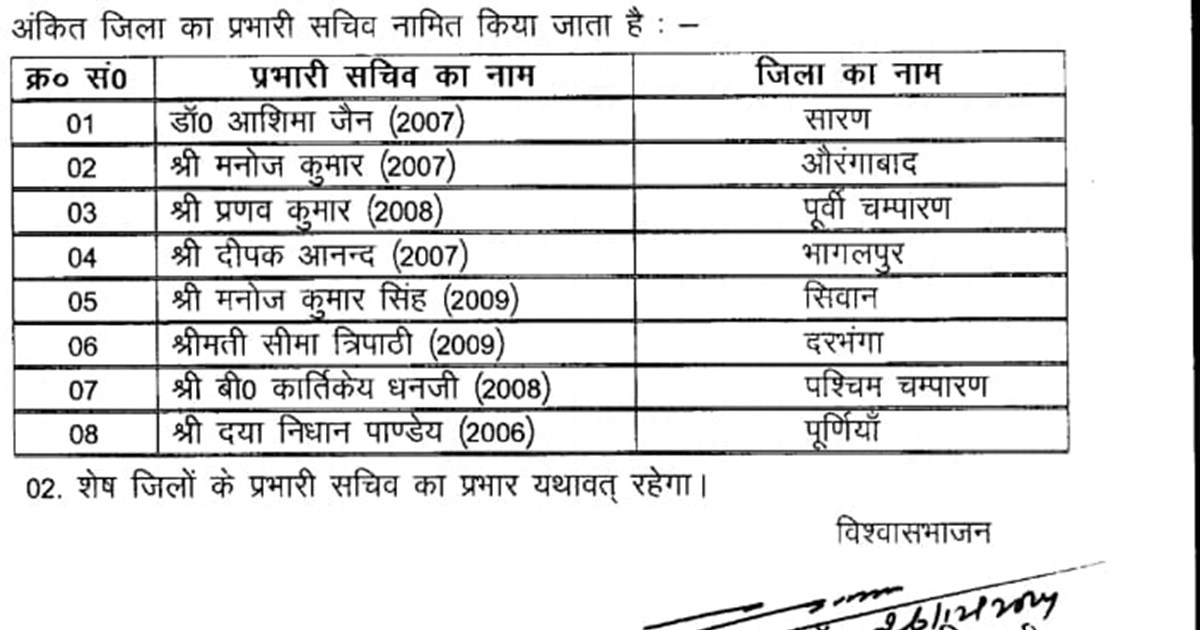 अंकित जिला का प्रभारी सचिव नामित किया जाता है : –
क्र० सं0 प्रभारी सचिव का नाम जिला का नाम
01 डॉ0 आशिमा जैन (2007) सारण
02 श्री मनोज कुमार (2007) औरंगाबाद
03 श्री प्रणव कुमार (2008) पूर्वी चम्पारण
04 श्री दीपक आनन्द (2007) भागलपुर
05 श्री मनोज कुमार सिंह (2009) सिवान
06 श्रीमती सीमा त्रिपाठी (2009) दरभंगा
07 श्री बी0 कार्तिकेय धनजी (2008) पश्चिम चम्पारण
08 श्री दया निधान पाण्डेय (2006) पूर्णियाँ
02. शेष जिलों के प्रभारी सचिव का प्रभार यथावत् रहेगा।
विश्वासभाजन